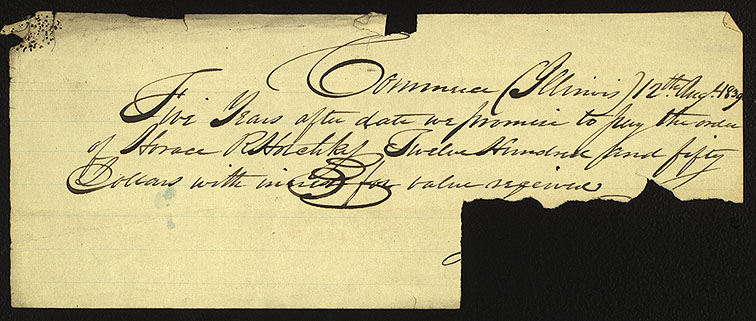 Commerce (Illinois) 12th Augt. 1839
Five Years after date we promise to pay the order
of Horace R Hotchkiss Twelve Hundred and fifty
Dollars with interest for value received